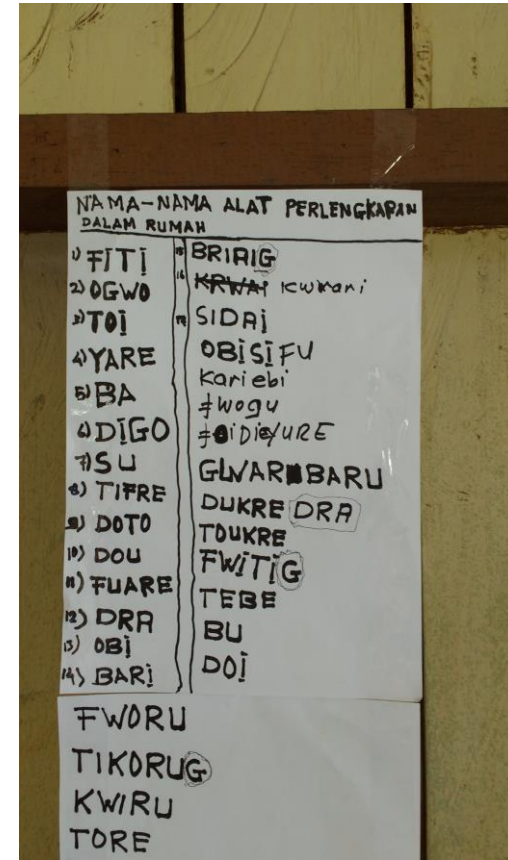 NAMA-NAMA ALAT PERLENGKAPAN
DALAM RUMAH
1) FITI
2) OGWO
3) TOI
4) YARE
5) BA
6) DIGO
7) SU
8) TIFRE
9) DOTO
10) DOU
11) FUARE
12) DRA
13) OBI
14) BARI
15 BRIRIG
16 KRWAI
17 SIDAI
OBISIFU
Kariebi
FWOGU
GWARBARU
DUKRE DRA
TOUKRE
FWITIG
TEBE
BU
DOI
FWORU
TIKORUG
KWIRU
TORE